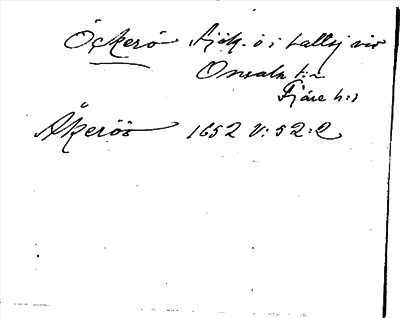 Öckerö sjök. ö i Kallsj vid
Onsala s:n
Fjäre h:d
Åkeröö 1652 V:52:2